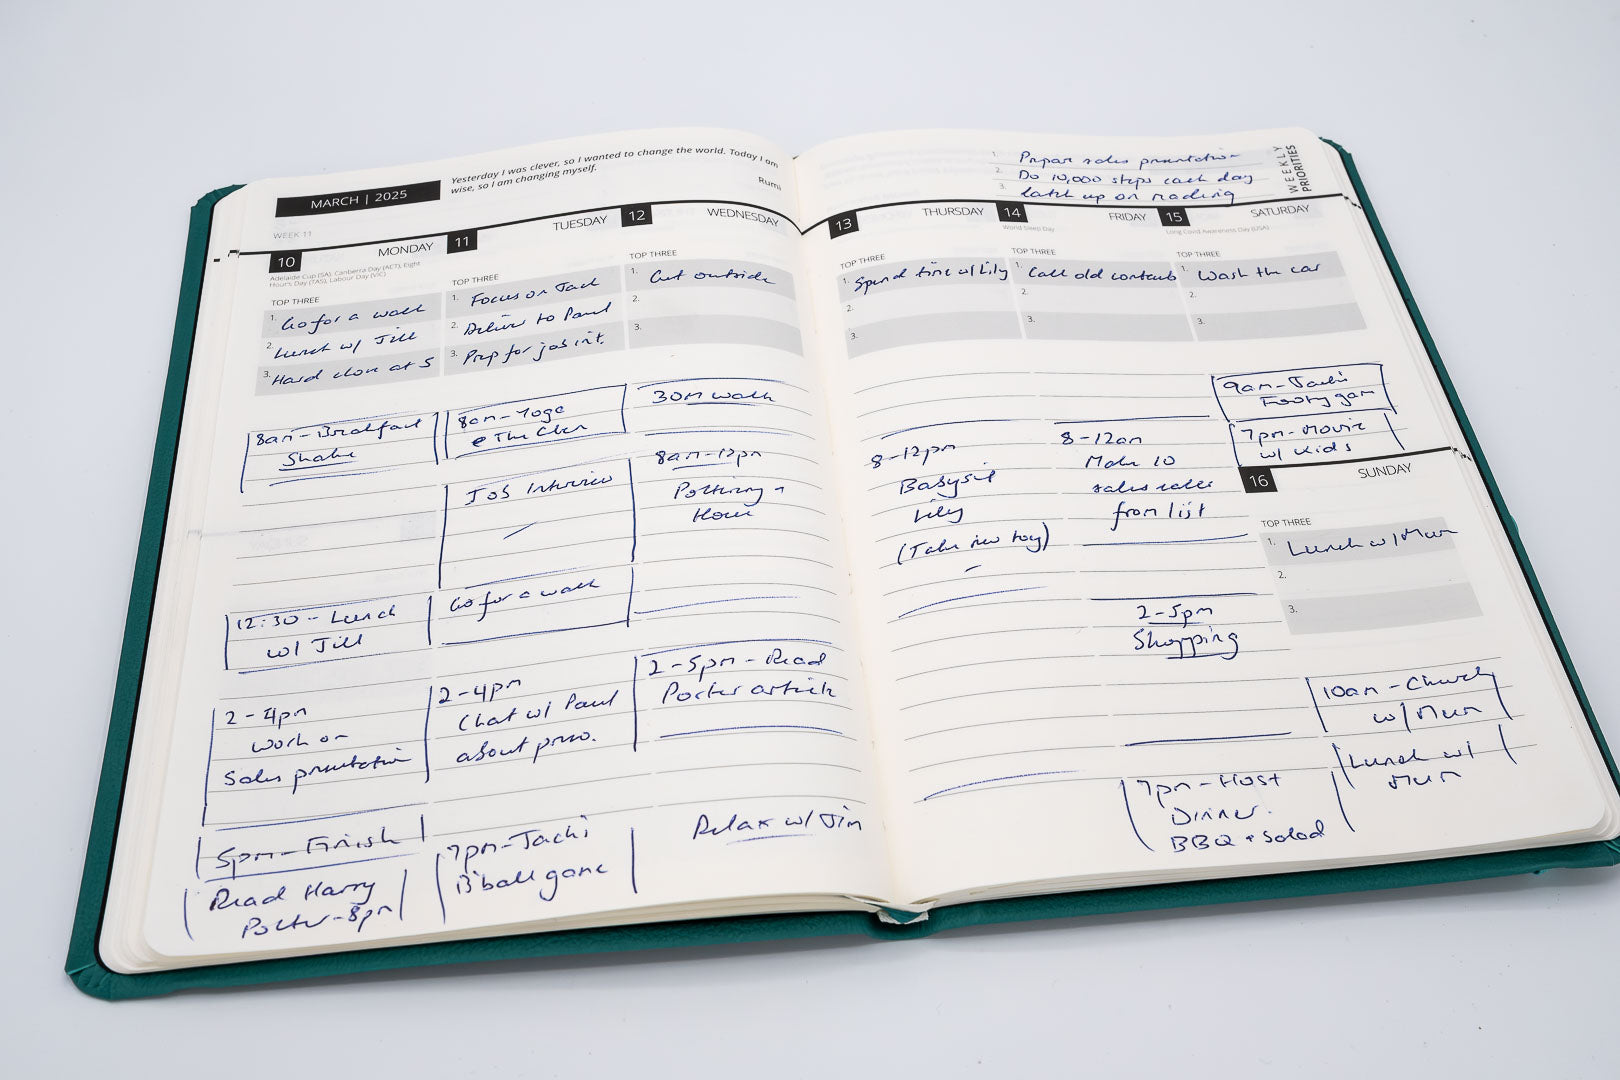 MARCH | 2025
WEEK 11
Yesterday I was clever, so I wanted to change the world. Today I am
wise, so I am changing myself.
Rumi
WEEKLY
PRIORITIES
1. Prepare sales presentation
2. Do 10,000 steps each day
3. Catch up on reading
10 MONDAY
Adelaide Cup (SA), Canberra Day (ACT), Eight
Hour's Day (TAS), Labour Day (VIC)
TOP THREE
1. Go for a walk
2. Lunch w/ Jill
3. Hard close at 5
8am - Breakfast
Shake
12:30 - Lunch
w/ Jill
2-4pm
work on
Sales presentation
5pm - Finish
Read Harry
Potter - 8pm
11 TUESDAY
TOP THREE
1. Focus on Jack
2. Deliver to Paul
3. Prep for job int.
8am - Yoga
@ The
Job Interview
Go for a walk
2-4pm
Chat w/ Paul
about preso.
7pm - Jack's
B'ball game
12 WEDNESDAY
TOP THREE
1. Get outside
2.
3.
30m walk
8am-12pm
Pottering
House
2-5pm - Read
Porter article
Relax w/ Jim
13 THURSDAY
TOP THREE
1. Spend time w/ Lily
2.
3.
8-12pm
Babysit
Lily
(Take new toy)
14 FRIDAY
World Sleep Day
TOP THREE
1. Call old contacts
2.
3.
8-12am
Make 10
sales calls
from list
2-5pm
Shopping
7pm - Host
Dinner
BBQ + Salad
15 SATURDAY
Long Covid Awareness Day (USA)
TOP THREE
1. Wash the car
2.
3.
9am - Jack's
Footy game
7pm - Movie
w/ kids
16 SUNDAY
TOP THREE
1. Lunch w/ Mum
2.
3.
10am - Church
w/ Mum
Lunch w/
Mum